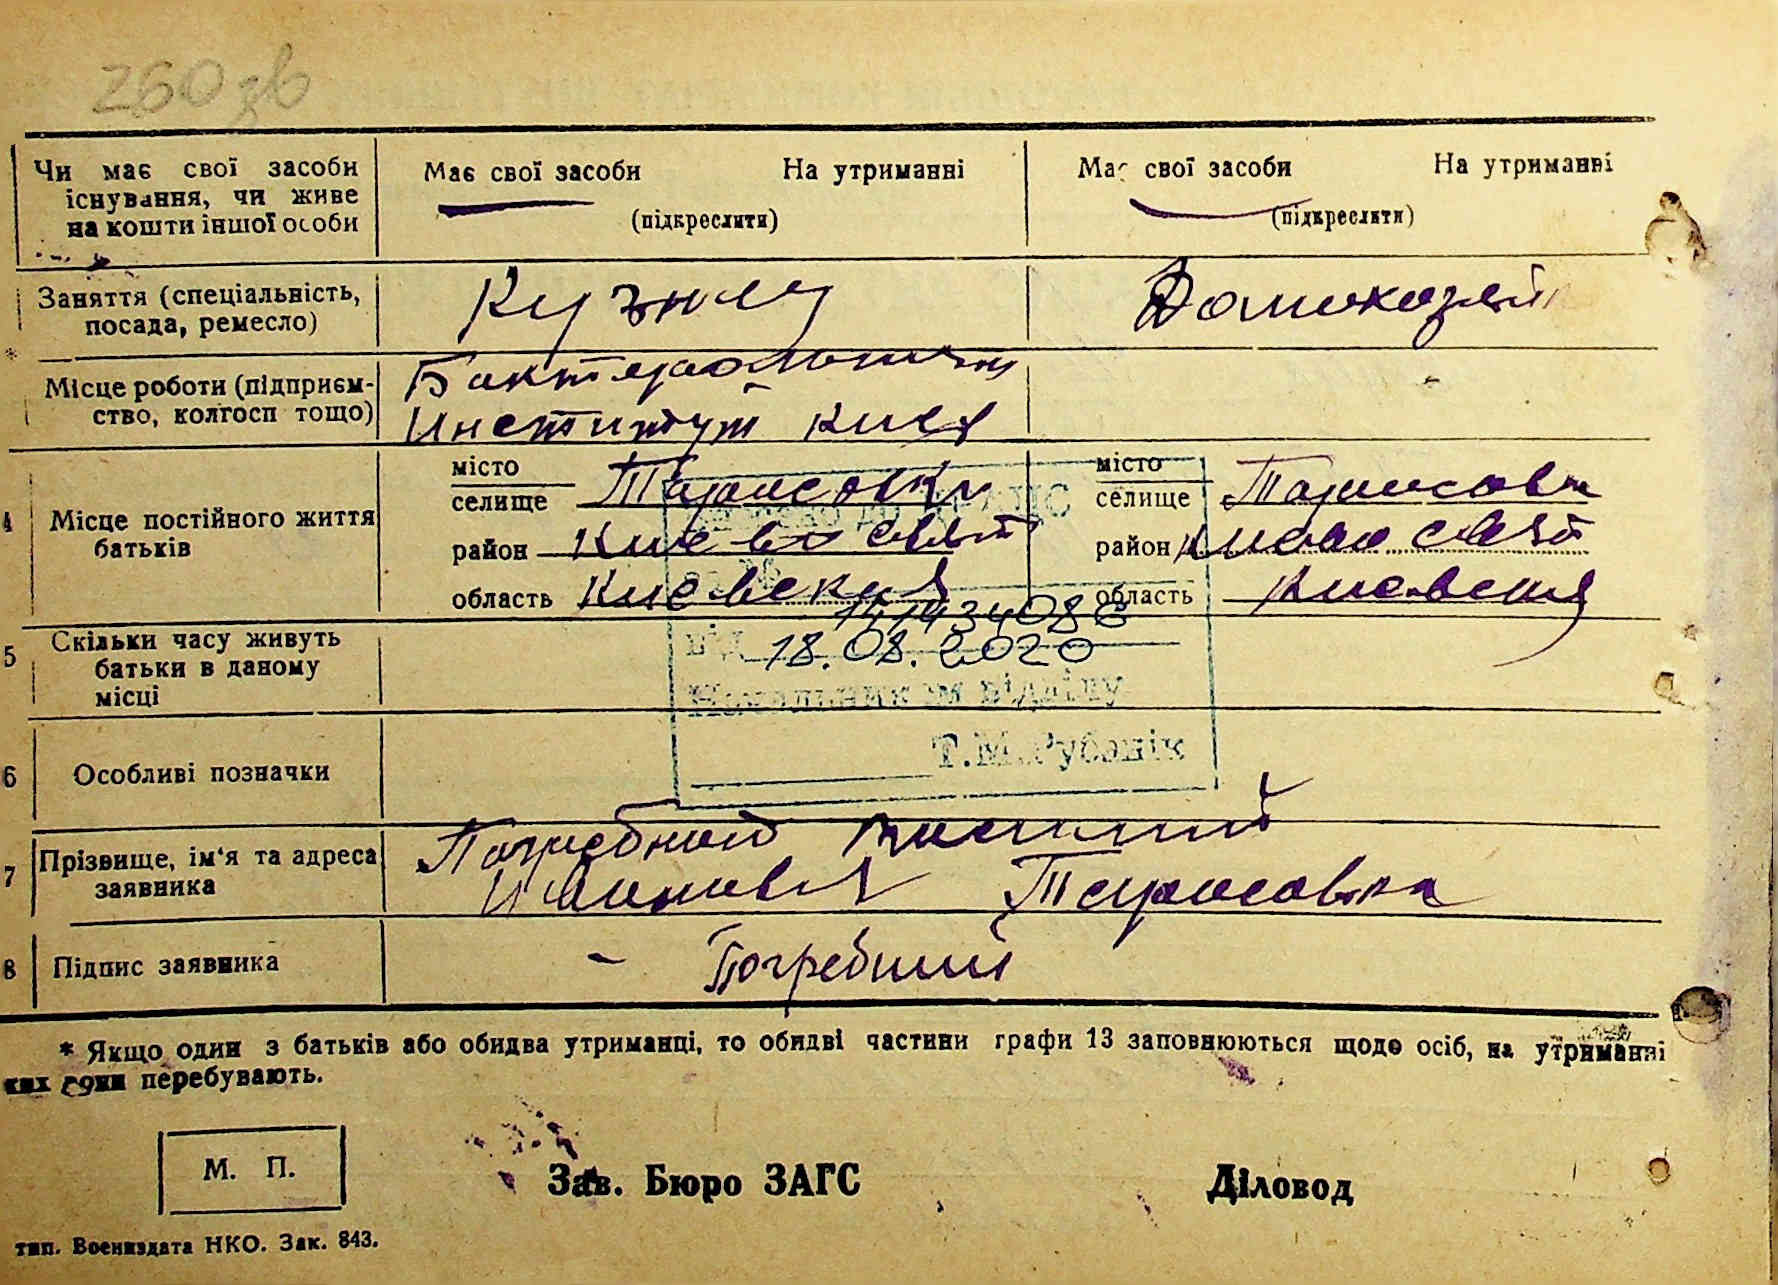 260 зв
Чи має свої засоби
існування, чи живе
на кошти іншої особи
Має свої засоби На утриманні
(підкреслити)
Має свої засоби На утриманні
(підкреслити)
Заняття (спеціальність,
посада, ремесло)
*
Місце роботи (підприєм-
ство, колгосп тощо)
Институт Киев
4 Місце постійного життя
батьків
місто
селище Тарасовка
район Киево Свят
область Киевская
місто
селище Тарасовка
район Киево Свят
область Киевская
5 Скільки часу живуть
батьки в даному
місці
14143408
від 18.08.2020
Начальник відділу
Т.М.Рубанік
6 Особливі позначки
7 Прізвище, ім'я та адреса
заявника
Погребной
Тарасовка
8 Підпис заявника
- Погребний
* Якщо один з батьків або обидва утриманці, то обидві частини графи 13 заповнюються щодо осіб, на утриманні
яких вони перебувають.
М. П.
Зав. Бюро ЗАГС
Діловод
тип. Воениздата НКО. Зак. 843.